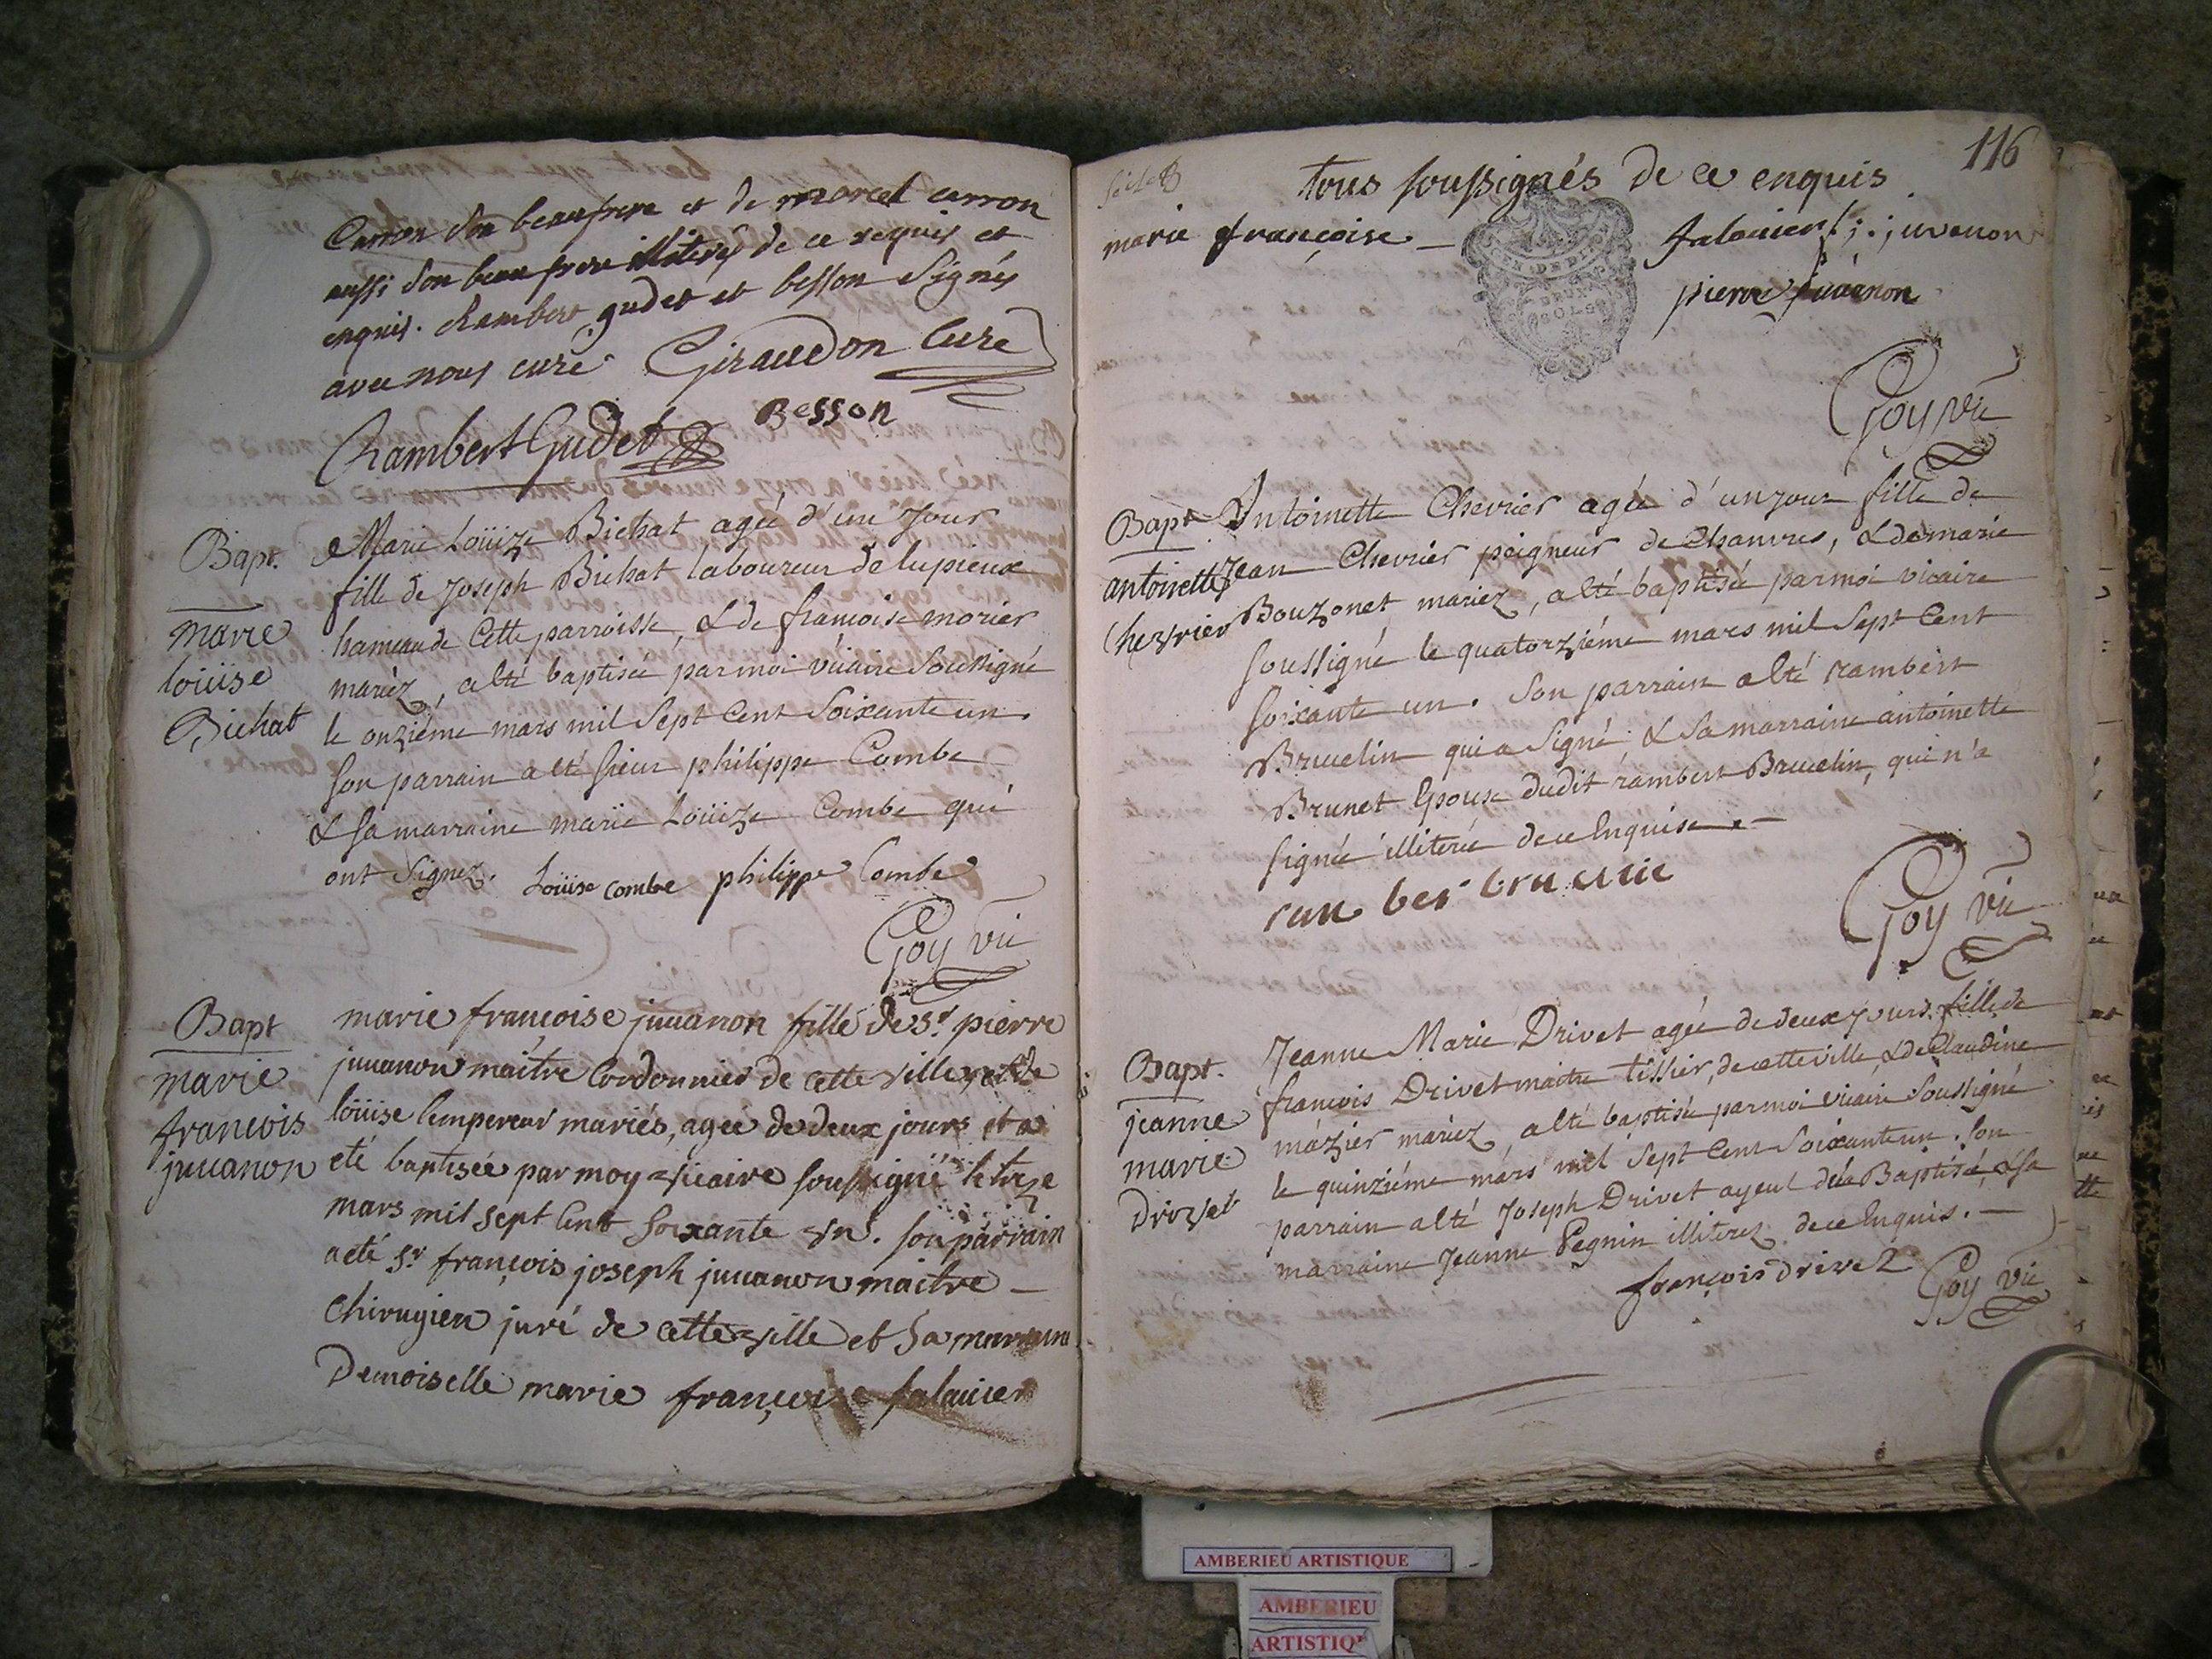 Carron son beaufrere et de marcel carron
aussi son beaufrere illiterés de ce requis et
enquis. Rambert gudet et besson signés
avec nous curé Giraudon Curé
Besson
Rambert Gudet
Bapt.
marie
loüise
Bichat
Marie Loüize Bichat agée d'un jour
fille de Joseph Bichat laboureur de lupieux
hameau de Cette parroisse, & de francoise morier
mariez, a été baptisée par moi vicaire Soussigné
le onziéme mars mil Sept Cent Soixante un.
Son parrain a été Sieur philippe Combe
& Sa marraine marie Loüize Combe qui
ont Signez. Loüise combe philippe Combe
Goy vic
Bapt
marie
francois
juuanon
marie françoise juuanon fille de Sr. pierre
juuanon maitre Cordonnier de cette ville, et de
loüise lempereur mariés, agée de deux jours et a
eté baptisée par moy vicaire soussigné le treze
mars mil sept Cent soixante vn. son parrain
a eté Sr françois joseph juuanon maitre
Chirugien juré de cette ville et Sa marraine
Demoiselle marie françoise falauier
116
tous soussignés de ce enquis
marie françoise falouier juvanon
pierre juuanon
Goy vic
Bapt
antoinette
Chevrier
Antoinette Chevrier agée d'un jour fille de
Jean Chevrier peigneur de Chanvres, & de marie
Bouzonet mariez, a été baptisée par moi vicaire
soussigné le quatorziéme mars mil Sept Cent
soixante un. Son parrain a été rambert
Bruelin qui a Signé, & Sa marraine antoinette
Brunet Epouse dudit rambert Bruelin, qui n'a
signée illiterée de ce Enquise.
Goy vic
Bapt.
jeanne
marie
Drivet
Jeanne Marie Drivet agée de deux jours fille de
francois Drivet maitre tissier, de cette ville, & de Claudine
mazier mariez, a été baptisée par moi vicaire Soussigné
le quinziéme mars mil Sept Cent Soixante un. Son
parrain a été Joseph Drivet ayeul de la Baptisée, & Sa
marraine Jeanne Pegnin illiterez de ce Enquis.
françois drivet Goy vic
AMBERIEU ARTISTIQUE
AMBERIEU
ARTISTIQ